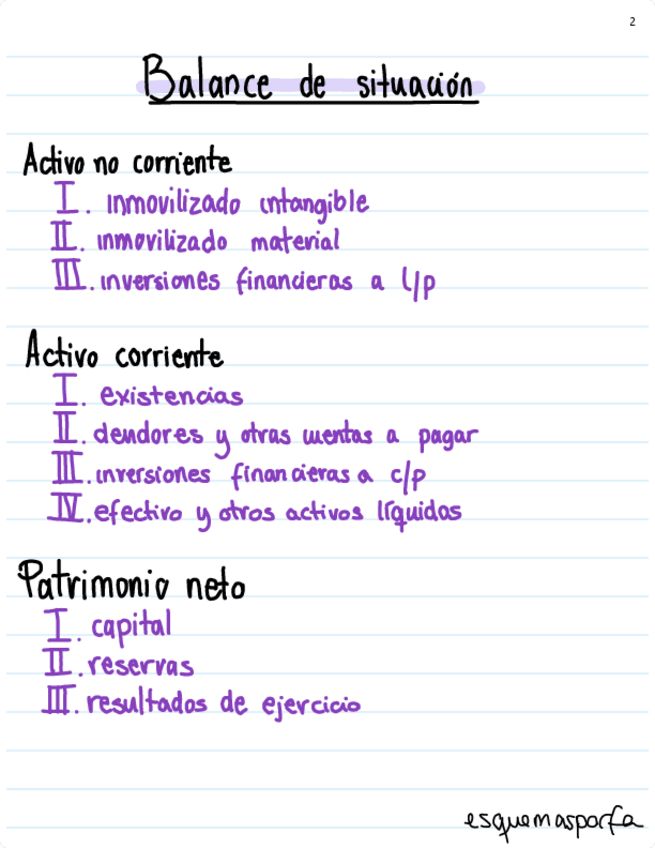 2
Balance de situación
Activo no corriente
I. inmovilizado intangible
II. inmovilizado material
III. inversiones financieras a l/p
Activo corriente
I. existencias
II. deudores y otras cuentas a pagar
III. inversiones financieras a c/p
IV. efectivo y otros activos líquidos
Patrimonio neto
I. capital
II. reservas
III. resultados de ejercicio
esquemasporfa